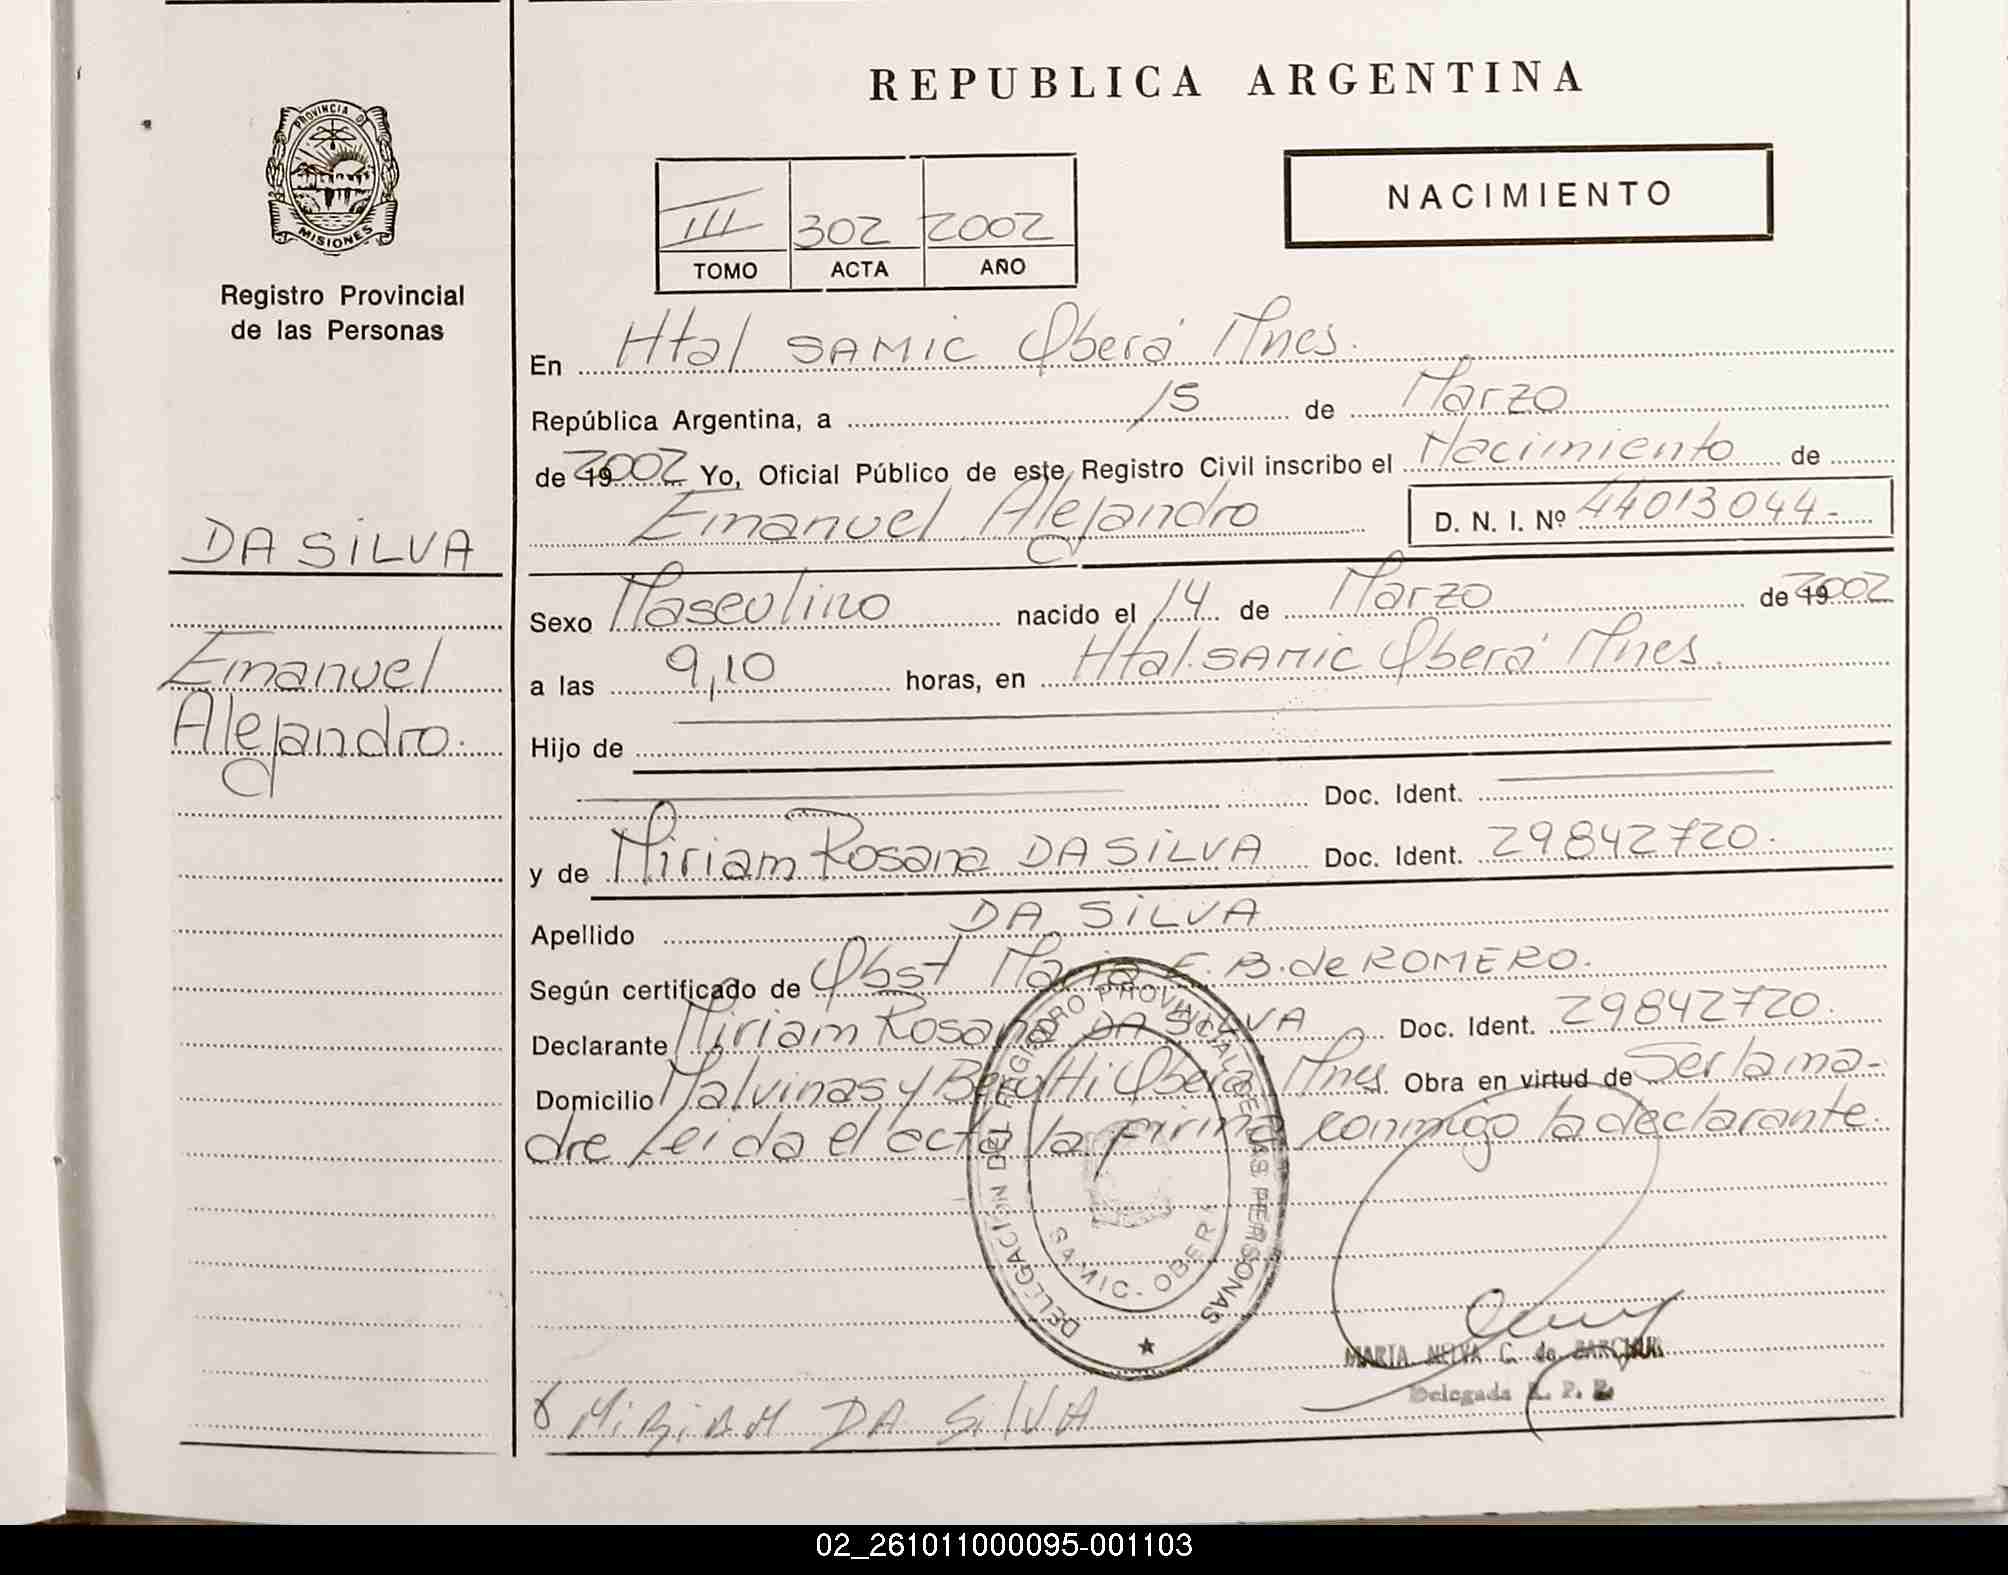 REPUBLICA ARGENTINA
PROVINCIA D
MISIONES
Registro Provincial
de las Personas
NACIMIENTO
III 302 2002
TOMO ACTA AÑO
En Htal SAMIC Oberá Mnes.
República Argentina, a 15 de Marzo
de 19 2002 Yo, Oficial Público de este Registro Civil inscribo el Nacimiento de
Emanuel Alejandro D. N. I. Nº 44013044-
DA SILVA
Emanuel
Alejandro.
Sexo Masculino nacido el 14 de Marzo de 19 2002
a las 9,10 horas, en Htal. SAMIC Oberá Mnes.
Hijo de
Doc. Ident.
y de Miriam Rosana DA SILVA Doc. Ident. 29842720.
Apellido DA SILVA
Según certificado de Obst María E. B. de ROMERO.
Declarante Miriam Rosana DA SILVA Doc. Ident. 29842720.
Domicilio Malvinas y Berutti Oberá Mnes. Obra en virtud de Ser la ma-
dre Leida el acta la firma conmigo la declarante.
DELEGACION DEL REGISTRO PROVINCIAL DE LAS PERSONAS
SAMIC - OBER
MARIA NELVA C. de
Delegada R. P. P.
MIRIAM DA SILVA
02_261011000095-001103